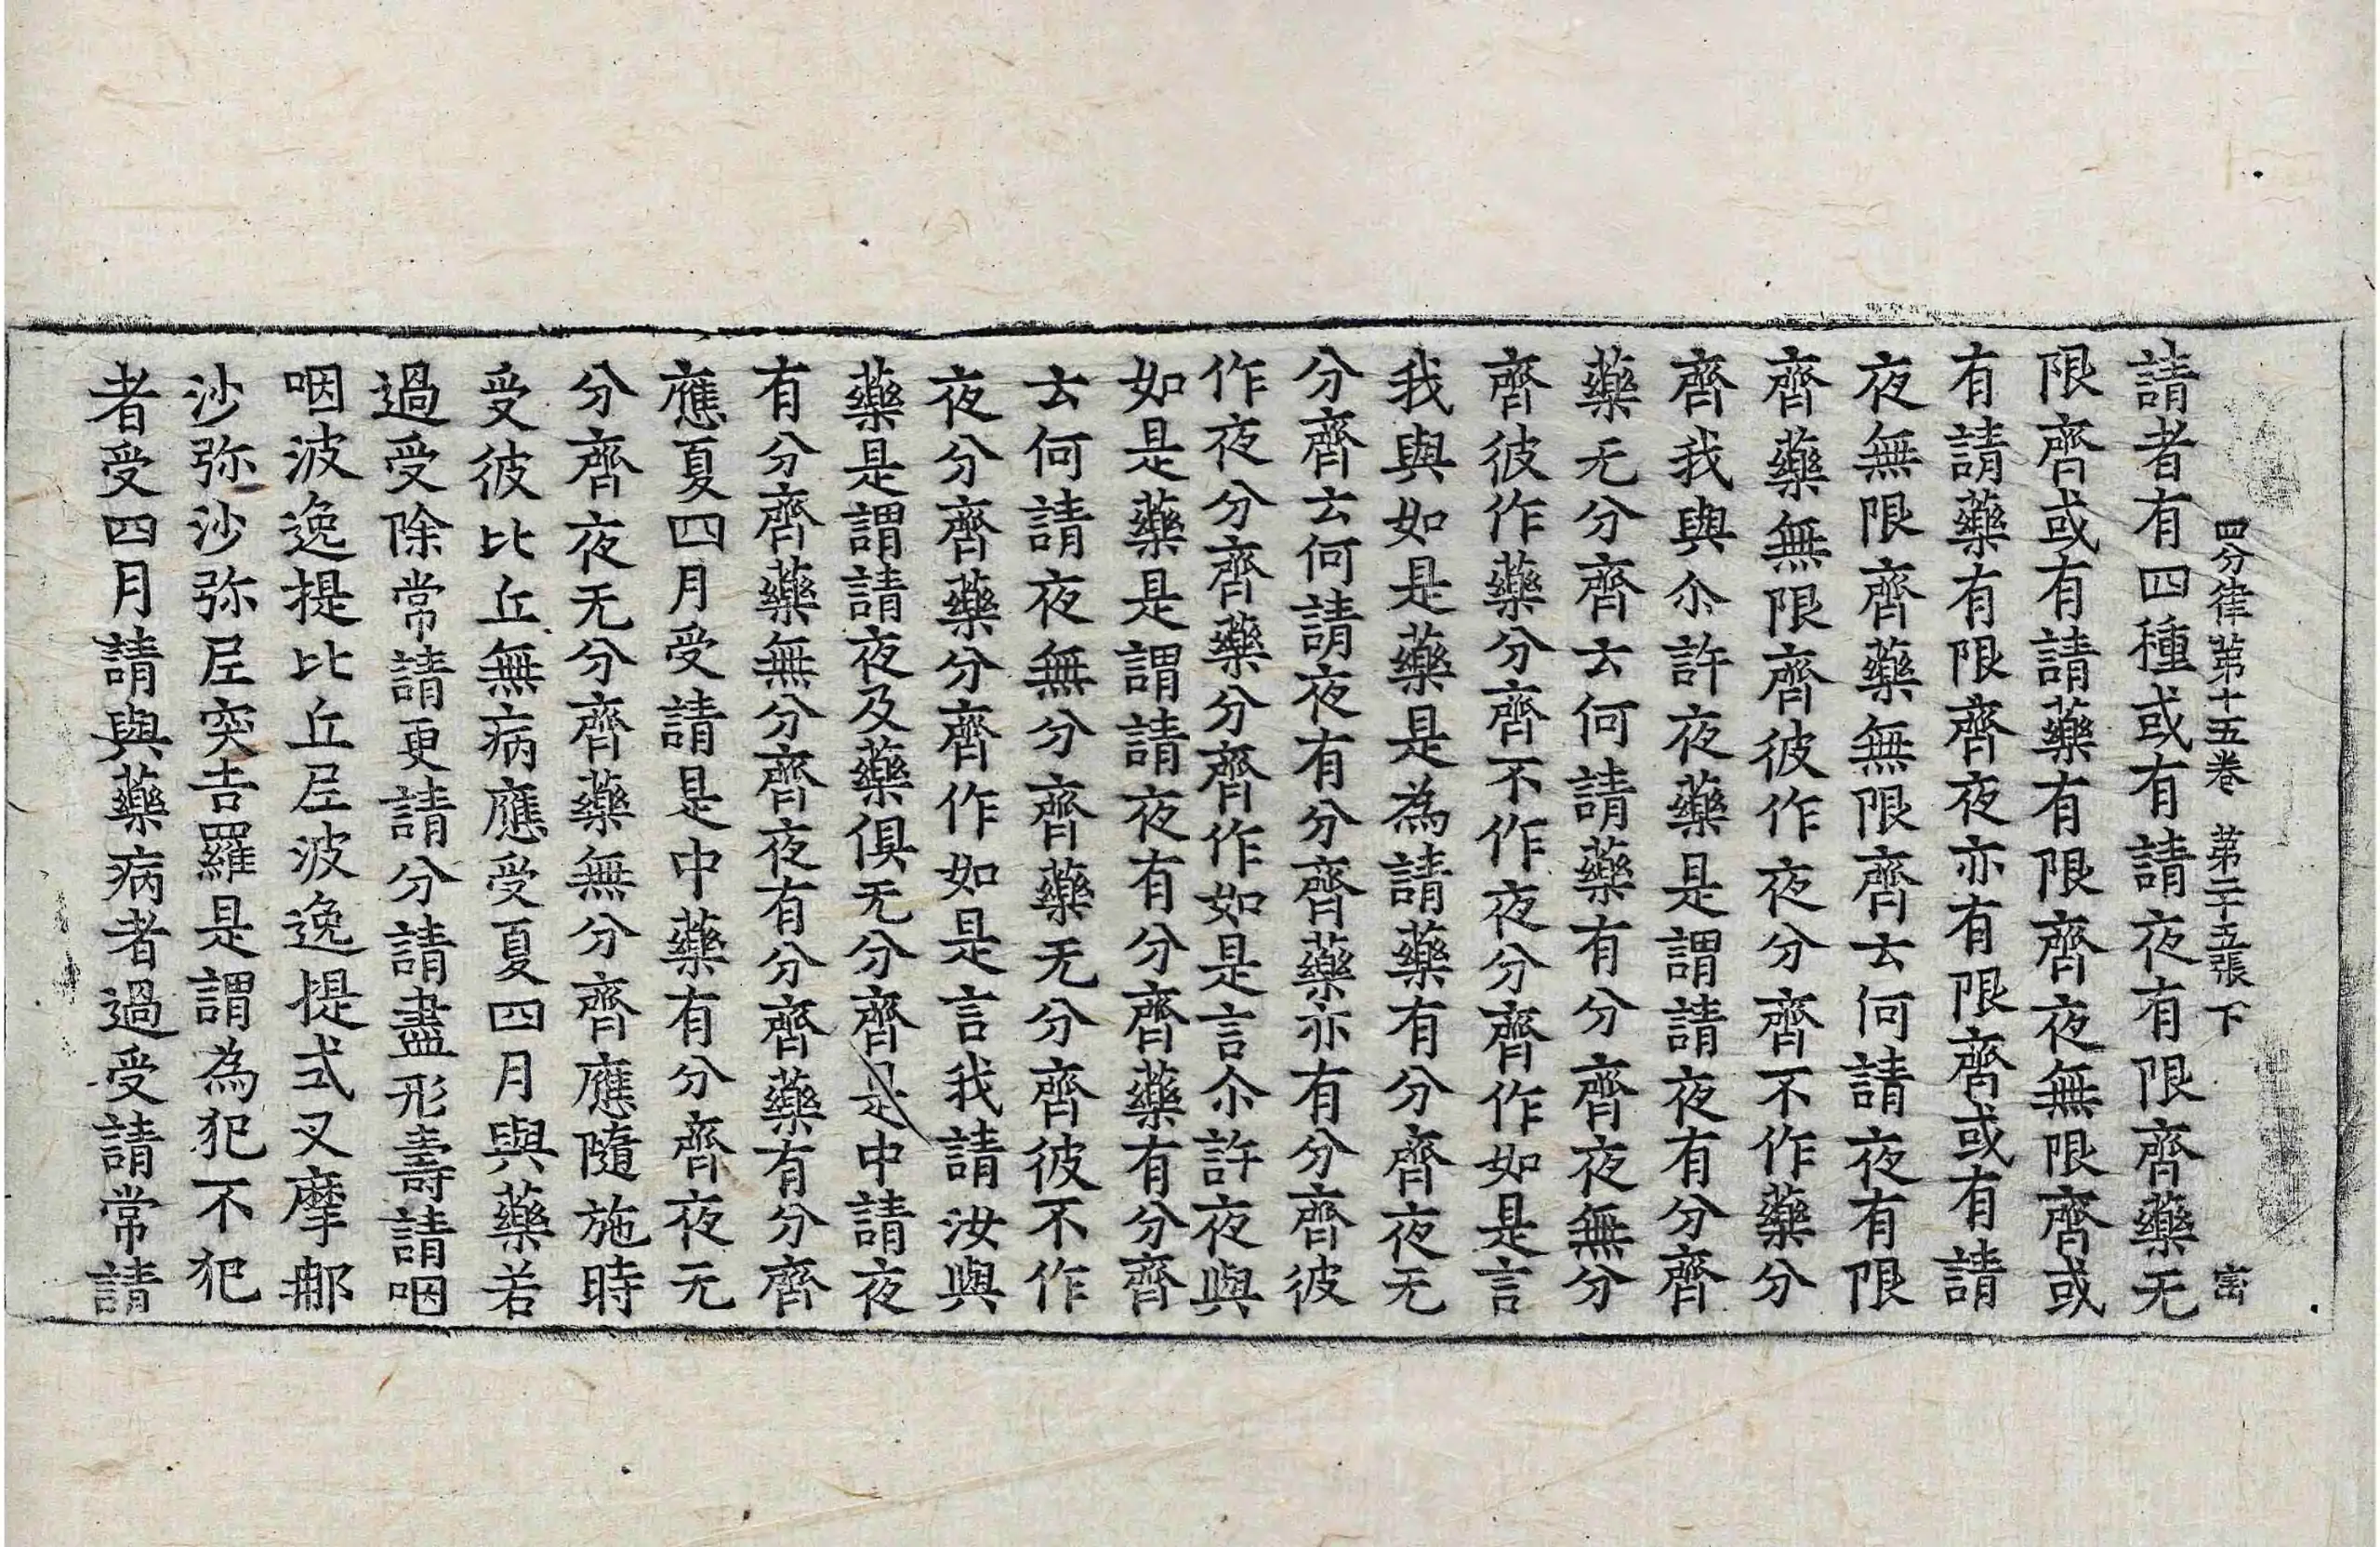 四分律第十五卷 第二十五張 下 宻
請者有四種或有請夜有限齊藥无
限齊或有請藥有限齊夜無限齊或
有請藥有限齊夜亦有限齊或有請
夜無限齊藥無限齊云何請夜有限
齊藥無限齊彼作夜分齊不作藥分
齊我與尒許夜藥是謂請夜有分齊
藥无分齊云何請藥有分齊夜無分
齊彼作藥分齊不作夜分齊作如是言
我與如是藥是為請藥有分齊夜无
分齊云何請夜有分齊藥亦有分齊彼
作夜分齊藥分齊作如是言尒許夜與
如是藥是謂請夜有分齊藥有分齊
云何請夜無分齊藥无分齊彼不作
夜分齊藥分齊作如是言我請汝與
藥是謂請夜及藥俱无分齊是中請夜
有分齊藥無分齊夜有分齊藥有分齊
應夏四月受請是中藥有分齊夜无
分齊夜无分齊藥無分齊應隨施時
受彼比丘無病應受夏四月與藥若
過受除常請更請分請盡形壽請咽
咽波逸提比丘尼波逸提式叉摩那
沙弥沙弥尼突吉羅是謂為犯不犯
者受四月請與藥病者過受請常請